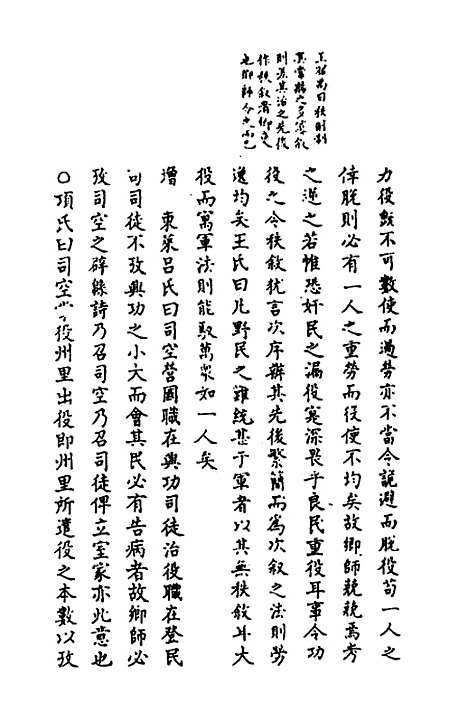 王昭禹曰秩則制
其常
則若其治之先後
作秩敘者鄉吏
也鄉師令之而已
力役既不可數使而過勞亦不當令詭避而脫役苟一人之
倖脫則必有一人之重勞而役使不均矣故鄉師兢兢焉考
之逆之若惟恐奸民之漏役寔深畏乎良民重役耳事令功
役之令秩敘猶言次序辨其先後繁簡而為次敘之法則勞
逸均矣王氏曰凡野民之難統甚于軍者以其無秩敘耳大
役而寓軍法則能馭萬眾如一人矣
增 東萊呂氏曰司空營國職在興功司徒治役職在登民
司徒不攷興功之小大而會其民必有告病者故鄉師必
攷司空之辟綿詩乃召司空乃召司徒俾立室家亦此意也
○項氏曰司空 役州里出役即州里所遣役之本數以攷